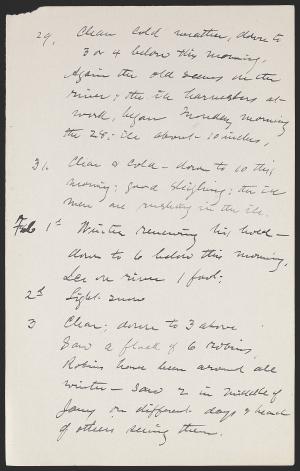 29. Clear cold weather, down to
3 or 4 below this morning.
Again the old scenes on the
river; the ice harvesters at
work, began Monday morning
the 28; ice about 10 inches,
31. Clear & Cold - down to 10 this
morning; good sleighing; the ice
men are rushing in the ice.
Feb 1st Winter renewing his hold -
down to 6 below this morning,
Ice on river 1 foot;
2d Light snow
3 Clear; down to 3 above
Saw a flock of 6 robins,
Robins have been around all
winter - Saw 2 in middle of
Jany on different days & heard
of others seeing them.